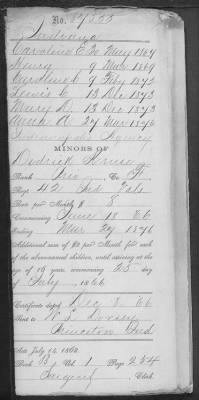 No. 87533
Indiana
Caroline E 20 May 1869
Henry 9 Mar 1869
Caroline C 9 Feby 1872
Lewis C 13 Dec 1873
Mary D 13 Dec 1873
27 Mar 1876
Indianapolis Agency
MINORS OF
Rank Co. F
Regt 42 Ind Vols
Rate per Month, $ 8
Commencing June 18 66
Ending Mar 27 1876
Additional sum of $2 per Month for each
of the abovenamed children, until arriving at the
age of 16 years, commencing 25 day
of July , 1866
Certificate dated Dec 8. 66
Sent to
Princeton Ind
Act July 14, 1862.
Book B Vol. 1 Page 254
Clerk